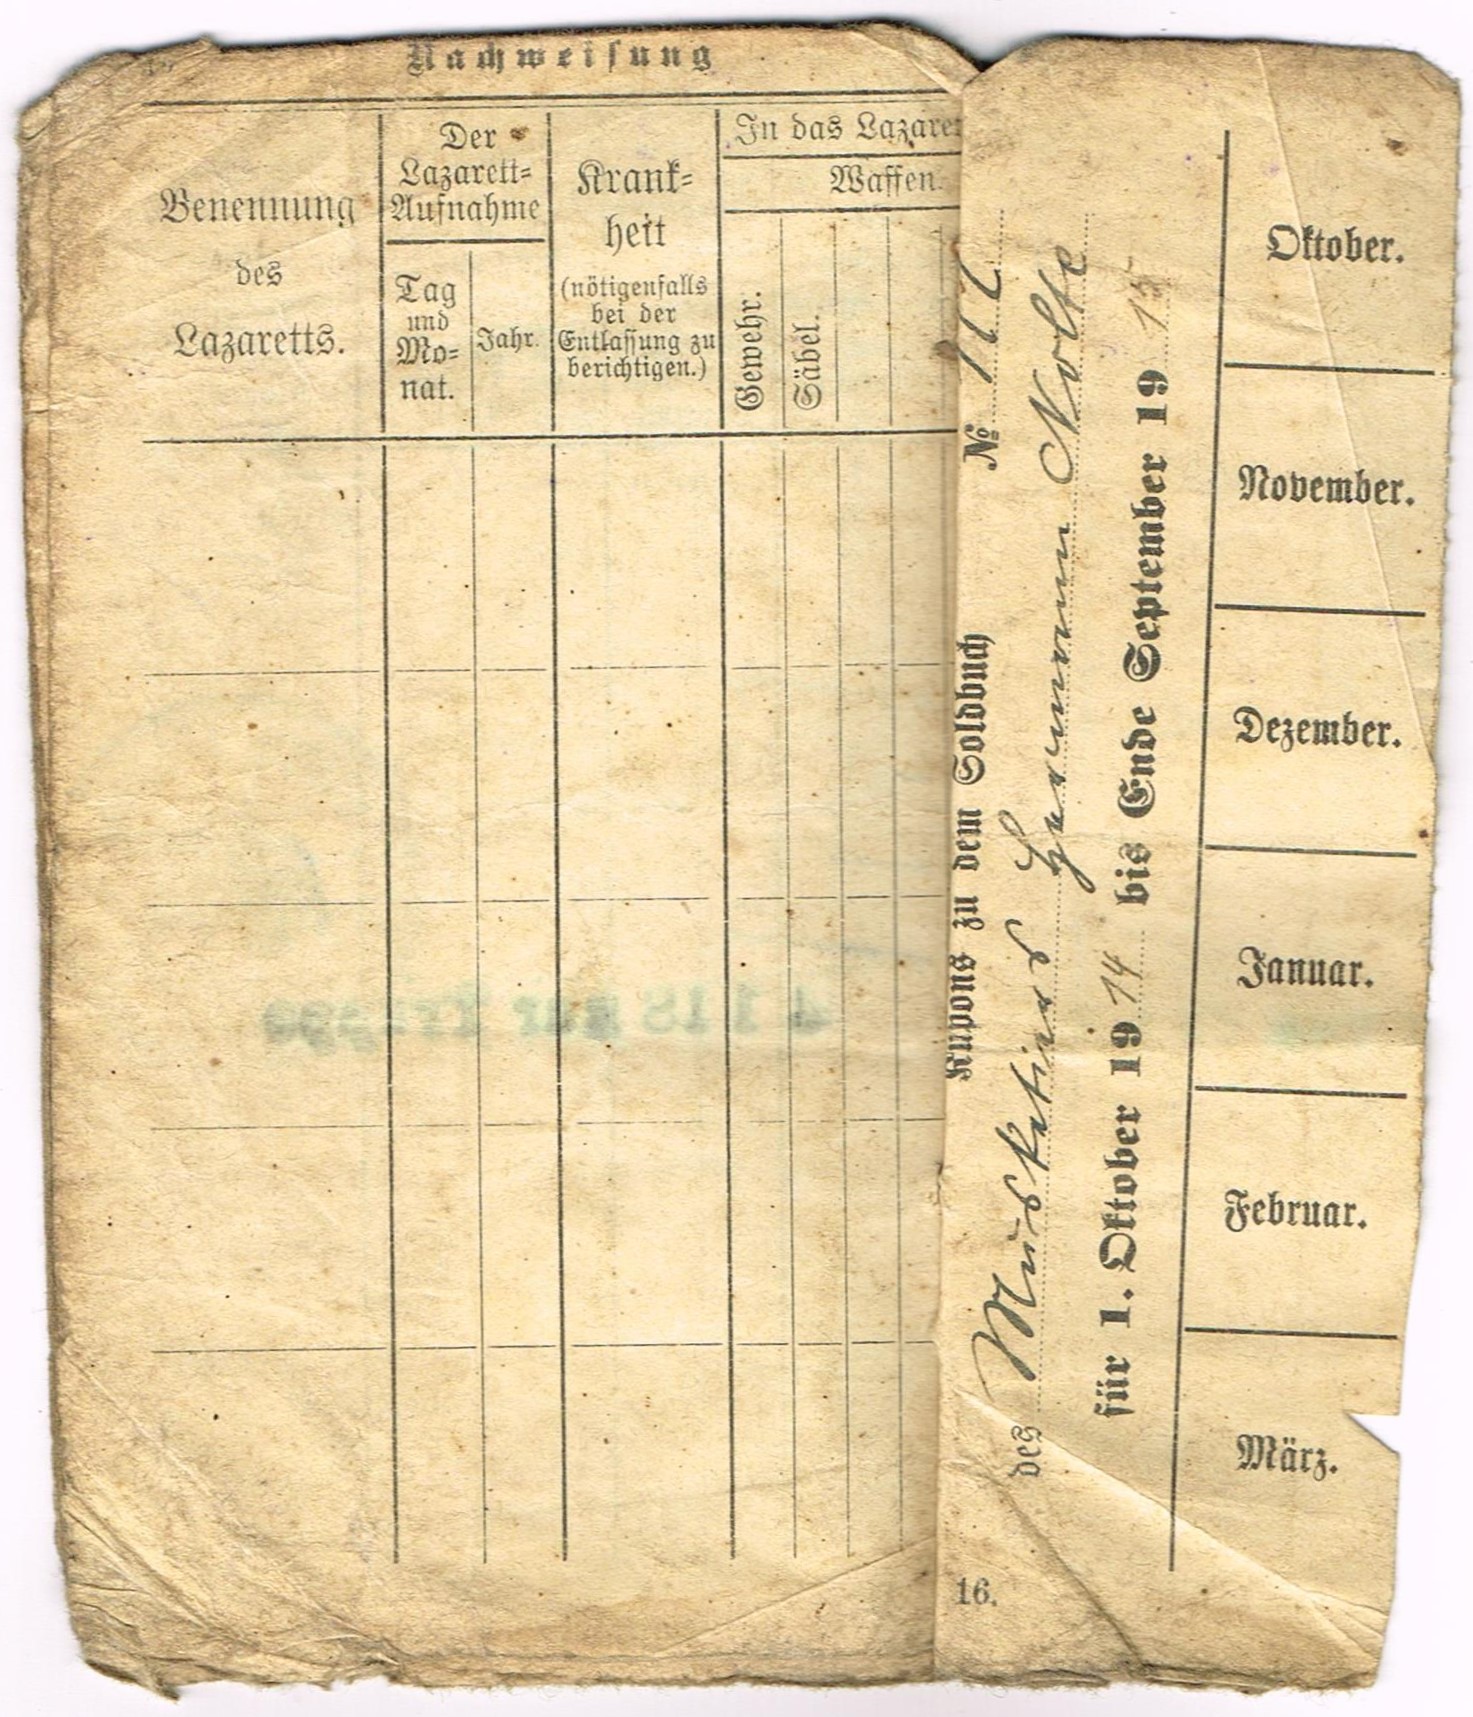 Nachweisung
Benennung
des
Lazaretts.
Der
Lazarett-
Aufnahme
Tag
und
Mo-
nat.
Jahr.
Krank-
heit
(nötigenfalls
bei der
Entlassung zu
berichtigen.)
In das Lazaret
Waffen.
Gewehr.
Säbel.
Kupons zu dem Soldbuch №
des Musketiers Hermann Nolte
für 1. Oktober 1914 bis Ende September 1915
Oktober.
November.
Dezember.
Januar.
Februar.
März.
16.